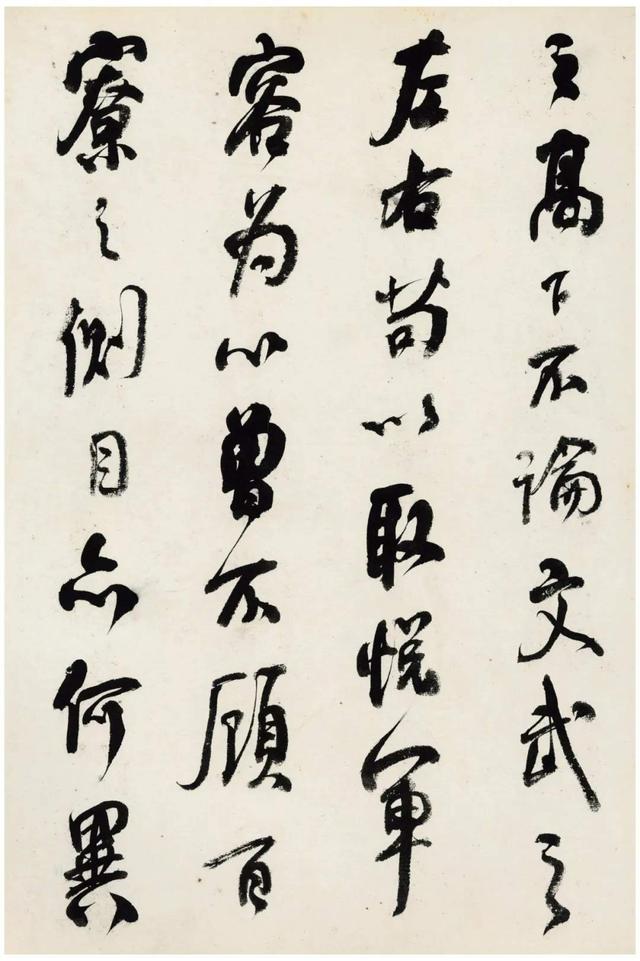 之高下不論文武之
左右苟以取悦軍
容為心曾不顧百
寮之側目亦何異